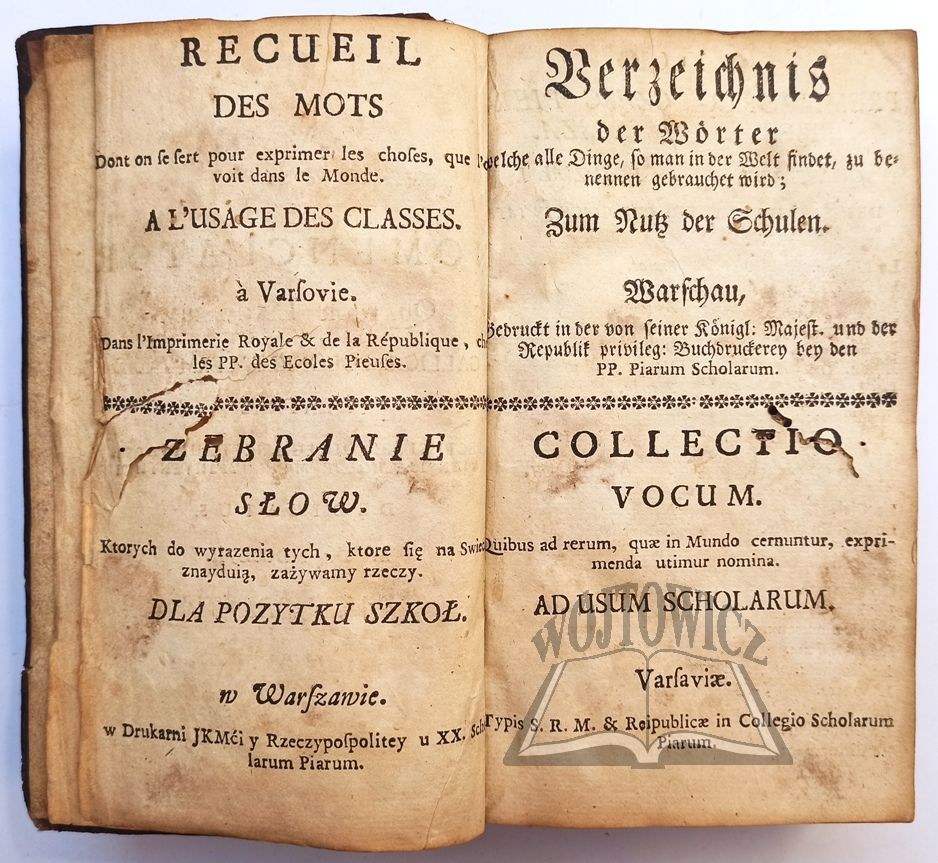 RECUEIL
DES MOTS
Dont on se sert pour exprimer les choses, que l'
voit dans le Monde.
A L'USAGE DES CLASSES.
à Varsovie.
Dans l'Imprimerie Royale & de la République, ch
lés PP. des Ecoles Pieuses.
ZEBRANIE
SŁOW.
Ktorych do wyrazenia tych, ktore się na Swie
znayduią, zażywamy rzeczy.
DLA POZYTKU SZKOŁ.
w Warszawie.
w Drukarni JKMći y Rzeczypospolitey u XX. Scho
larum Piarum.
Verzeichnis
der Wörter
welche alle Dinge, so man in der Welt findet, zu be-
nennen gebrauchet wird;
Zum Nutz der Schulen.
Warschau,
Gedruckt in der von seiner Königl: Majest. und der
Republik privileg: Buchdruckerey bey den
PP. Piarum Scholarum.
COLLECTIO
VOCUM.
Quibus ad rerum, quæ in Mundo cernuntur, expri-
menda utimur nomina.
AD USUM SCHOLARUM.
Varsaviæ.
Typis S. R. M. & Reipublicæ in Collegio Scholarum
Piarum.
WÓJTOWICZ